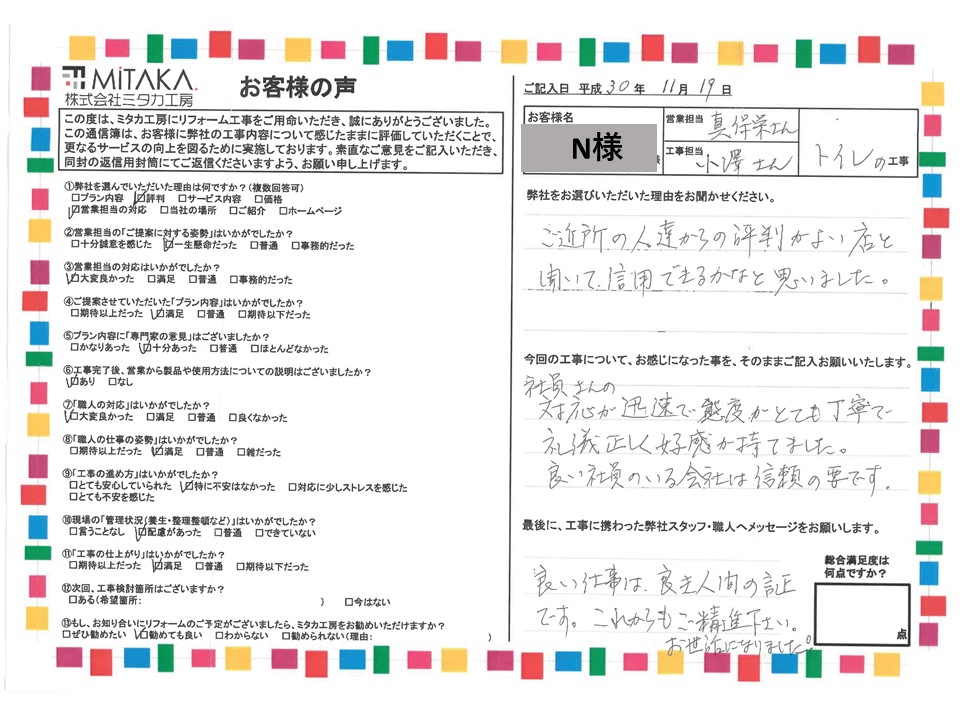 MiTAKA.
株式会社ミタカ工房
お客様の声
この度は、ミタカ工房にリフォーム工事をご用命いただき、誠にありがとうございました。
この通信簿は、お客様に弊社の工事内容について感じたままに評価していただくことで、
更なるサービスの向上を図るために実施しております。素直なご意見をご記入いただき、
同封の返信用封筒にてご返信くださいますよう、お願い申し上げます。
①弊社を選んでいただいた理由は何ですか？(複数回答可)
□プラン内容 ☑評判 □サービス内容 □価格
☑営業担当の対応 □当社の場所 □ご紹介 □ホームページ
②営業担当の「ご提案に対する姿勢」はいかがでしたか？
□十分誠意を感じた ☑一生懸命だった □普通 □事務的だった
③営業担当の対応はいかがでしたか？
☑大変良かった □満足 □普通 □事務的だった
④ご提案させていただいた「プラン内容」はいかがでしたか？
□期待以上だった ☑満足 □普通 □期待以下だった
⑤プラン内容に「専門家の意見」はございましたか？
□かなりあった ☑十分あった □普通 □ほとんどなかった
⑥工事完了後、営業から製品や使用方法についての説明はございましたか？
☑あり □なし
⑦「職人の対応」はいかがでしたか？
☑大変良かった □満足 □普通 □良くなかった
⑧「職人の仕事の姿勢」はいかがでしたか？
□期待以上だった ☑満足 □普通 □雑だった
⑨「工事の進め方」はいかがでしたか？
□とても安心していられた ☑特に不安はなかった □対応に少しストレスを感じた
□とても不安を感じた
⑩現場の「管理状況(養生・整理整頓など)」はいかがでしたか？
□言うことなし ☑配慮があった □普通 □できていない
⑪「工事の仕上がり」はいかがでしたか？
□期待以上だった ☑満足 □普通 □期待以下だった
⑫次回、工事検討箇所はございますか？
□ある(希望箇所: ) □今はない
⑬もし、お知り合いにリフォームのご予定がございましたら、ミタカ工房をお勧めいただけますか？
□ぜひ勧めたい ☑勧めても良い □わからない □勧められない(理由: )
ご記入日 平成 30 年 11 月 19 日
お客様名
N様
営業担当 真保栄さん
工事担当 小澤さん
トイレの工事
弊社をお選びいただいた理由をお聞かせください。
ご近所の人達からの評判がよい店と
聞いて、信用できるかなと思いました。
今回の工事について、お感じになった事を、そのままご記入お願いいたします。
社員さんの
対応が迅速で態度がとても丁寧で
礼儀正しく好感が持てました。
良い社員のいる会社は信頼の要です。
最後に、工事に携わった弊社スタッフ・職人へメッセージをお願いします。
良い仕事は、良き人間の証
です。これからもご精進下さい。
お世話になりました。
総合満足度は
何点ですか？
点